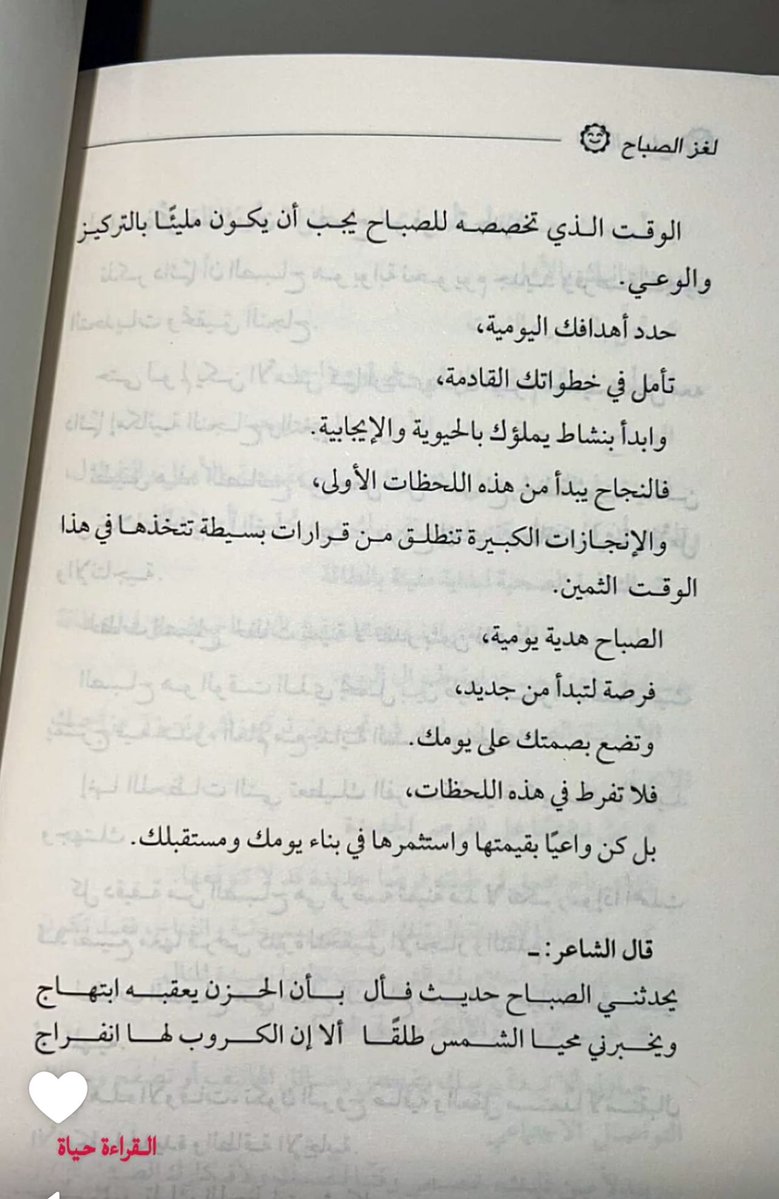 لغز الصباح
الوقت الذي تخصصه للصباح يجب أن يكون مليئًا بالتركيز
والوعي.
حدد أهدافك اليومية،
تأمل في خطواتك القادمة،
وابدأ بنشاط يملؤك بالحيوية والإيجابية.
فالنجاح يبدأ من هذه اللحظات الأولى،
والإنجازات الكبيرة تنطلق من قرارات بسيطة تتخذها في هذا
الوقت الثمين.
الصباح هدية يومية،
فرصة لتبدأ من جديد،
وتضع بصمتك على يومك.
فلا تفرط في هذه اللحظات،
بل كن واعيًا بقيمتها واستثمرها في بناء يومك ومستقبلك.
قال الشاعر: ـ
يحدثني الصباح حديث فأل بأن الحزن يعقبه ابتهاج
ويخبرني محيا الشمس طلقًا ألا إن الكروب لها انفراج
القراءة حياة